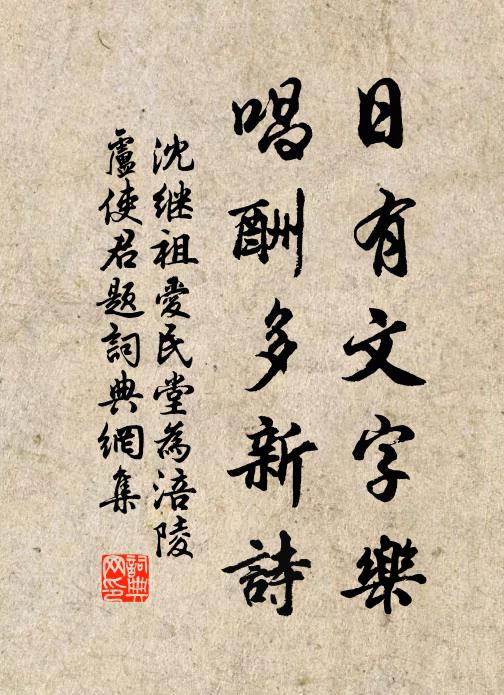 日有文字樂
唱酬多新詩
沈继祖愛民堂為涪陵
盧使君题詞典網集
詞典网印